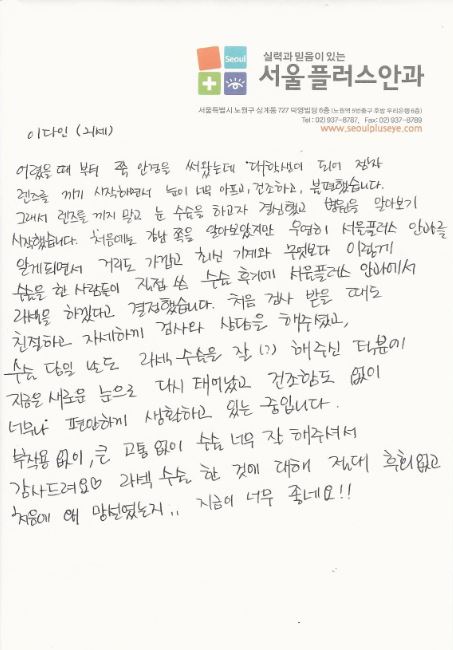 Seoul
실력과 믿음이 있는
서울플러스안과
서울특별시 노원구 상계동 727 덕영빌딩 6층 (노원역 5번출구 후방 우리은행 6층)
Tel : 02) 937-8787, Fax : 02) 937-8789
www.seoulpluseye.com
이다인 (21세)
어렸을 때 부터 쭉 안경을 써왔는데 대학생이 되어
렌즈를 끼기 시작하면서 눈이 너무 아프고, 건조하고, 불편했습니다.
그래서 렌즈를 끼지 말고 눈 수술을 하고자 결심했고 병원을 알아보기
시작했습니다. 처음에는 강남 쪽을 알아보았지만 우연히 서울플러스 안과를
알게되면서 거리도 가깝고 최신 기계와 무엇보다 이렇게
수술을 한 사람들이 직접 쓴 수술 후기에 서울플러스 안과에서
라섹을 하겠다고 결정했습니다. 처음 검사 받을 때도
친절하고 자세하게 검사와 상담을 해주셨고,
수술 당일 날도 라섹 수술을 잘 (?) 해주신 덕분에
지금은 새로운 눈으로 다시 태어났고 건조함도 없이
너무나 편안하게 생활하고 있는 중입니다.
부작용 없이, 큰 고통 없이 수술 너무 잘 해주셔서
감사드려요♡ 라섹 수술 한 것에 대해 절대 후회없고
처음에 왜 망설였는지.. 지금이 너무 좋네요!!